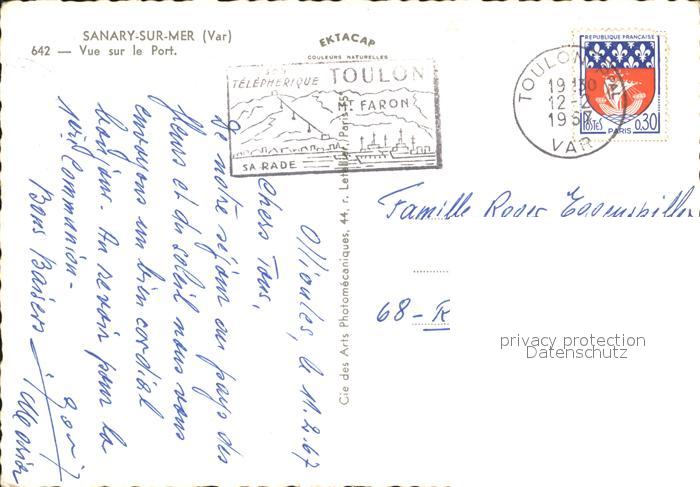 SANARY-SUR-MER (Var)
642 — Vue sur le Port.
EKTACAP
COULEURS NATURELLES
SON
TÉLÉPHERIQUE TOULON
MT FARON
SA RADE
TOULON
19H30
12-2
1967
VAR
REPUBLIQUE FRANÇAISE
POSTES
PARIS
0,30
Cie des Arts Photomécaniques, 44, r. Letellier, Paris-15
Ollioules, le 11.2.67
Chers Tous,
De notre séjour au pays des
fleurs et du soleil nous vous
envoyons un bien cordial
bonjour. Au revoir pour la
Communion.
Bons Baisers
Famille Roger
68-
privacy protection
Datenschutz